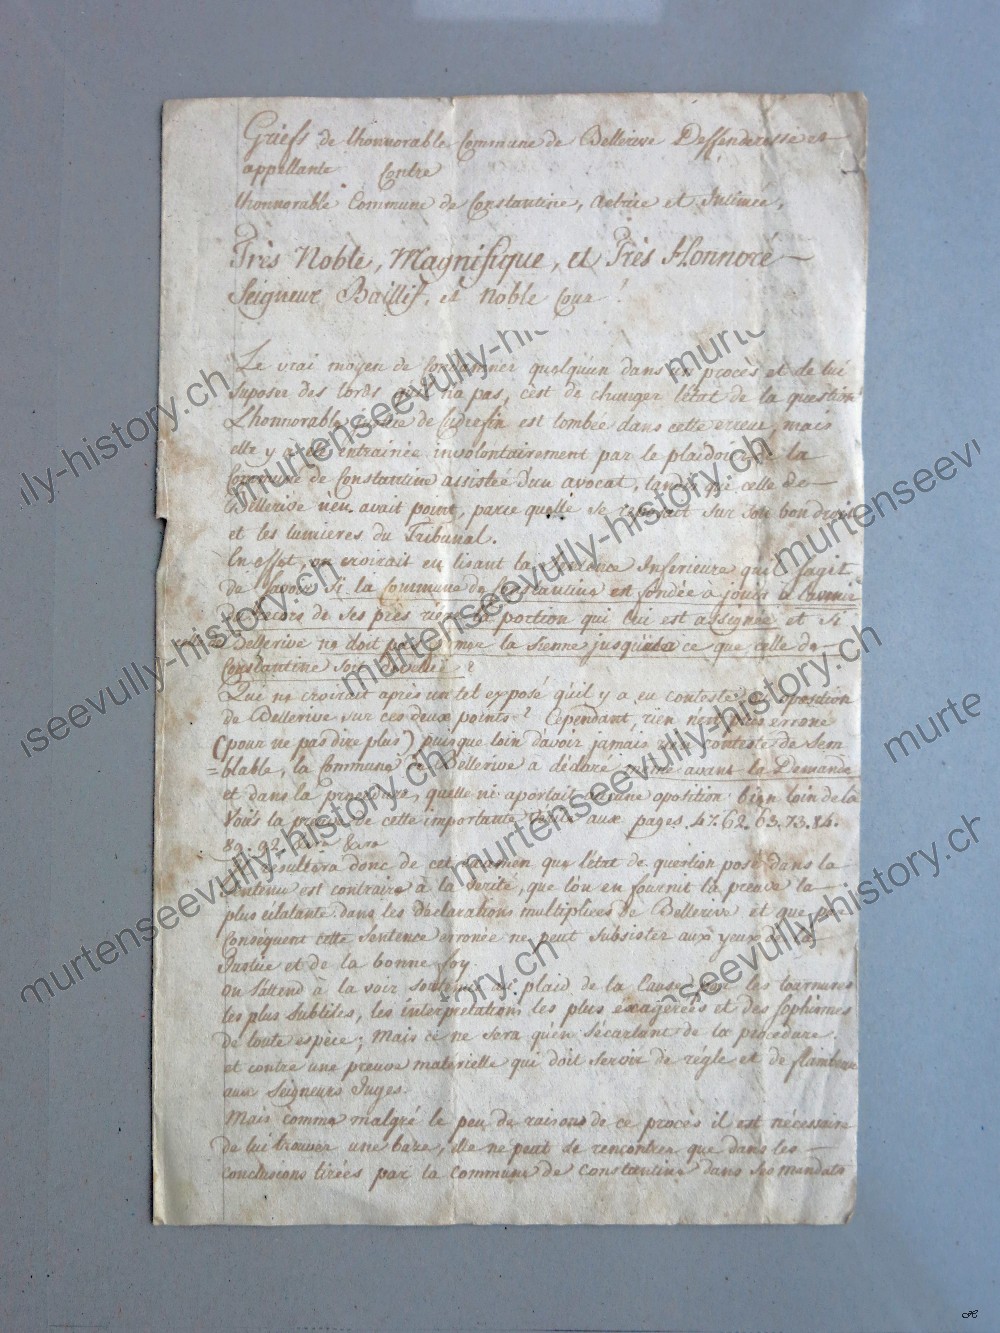 Griefs de l'honnorable Commune de Bellerive Deffenderesse et
appellante Contre
l'honnorable Commune de Constantine, Actrice et Intimée,
Très Noble, Magnifique, et Très Honnoré
Seigneur Baillif, et Noble Cour!
Le vrai moyen de Condamner quelqu'un dans un procès et de lui
suposer des tords qu'il n'a pas, c'est de changer l'état de la question
L'honnorable Justice de Cudrefin est tombée dans cette erreur, mais
elle y a été entrainée involontairement par le plaidoié de la
Commune de Constantine assistée d'un avocat, tandis que celle de
Bellerive n'en avait point, parce qu'elle se reposait sur son bon droit
et les lumieres du Tribunal.
En effet, on croirait en lisant la Sentence Inferieure qu'il s'agit
de savoir si la Commune de Constantine est fondée à jouir à l'avenir
de ses près rière la portion qui lui est assignée et si
Bellerive ne doit la sienne jusqu'à ce que celle de
Constantine soit ?
Qui ne croirait après un tel exposé qu'il y a eu conteste et oposition
de Bellerive sur ces deux points? Cependant, rien n'est plus erroné
(pour ne pas dire plus) puisque loin d'avoir jamais rien contesté de sem
=blable, la Commune de Bellerive a déclaré même avant la Demande
et dans la procedure, qu'elle n'i aportait aucune oposition bien loin de là
Vois la preuve de cette importante verité aux pages. 47. 62. 63. 73. 84.
89. 92.
Il résultera donc de cet examen que l'état de question posé dans la
sentence est contraire à la verité, que l'on en fournit la preuve la
plus éclatante dans les déclarations multiplices de Bellerive et que par
Conséquent cette Sentence erronée ne peut subsister aux yeux de la
Justice et de la bonne foy.
On s'attend à la voir soutenir au plaid de la Cause par les tournures
les plus subtiles, les interprétations les plus exagérées et des sophismes
de toute espèce; Mais ce ne sera qu'en s'écartant de la procédure
et contre une preuve materielle qui doit servir de règle et de flambeau
aux Seigneurs Juges.
Mais comme malgré le peu de raisons de ce procès il est nécessaire
de lui trouver une baze, elle ne peut se rencontrer que dans les
conclusions tirées par la commune de Constantine dans ses mandats
murtenseevully-history.ch
murtenseevully-history.ch
murtenseevully-history.ch
murtenseevully-history.ch